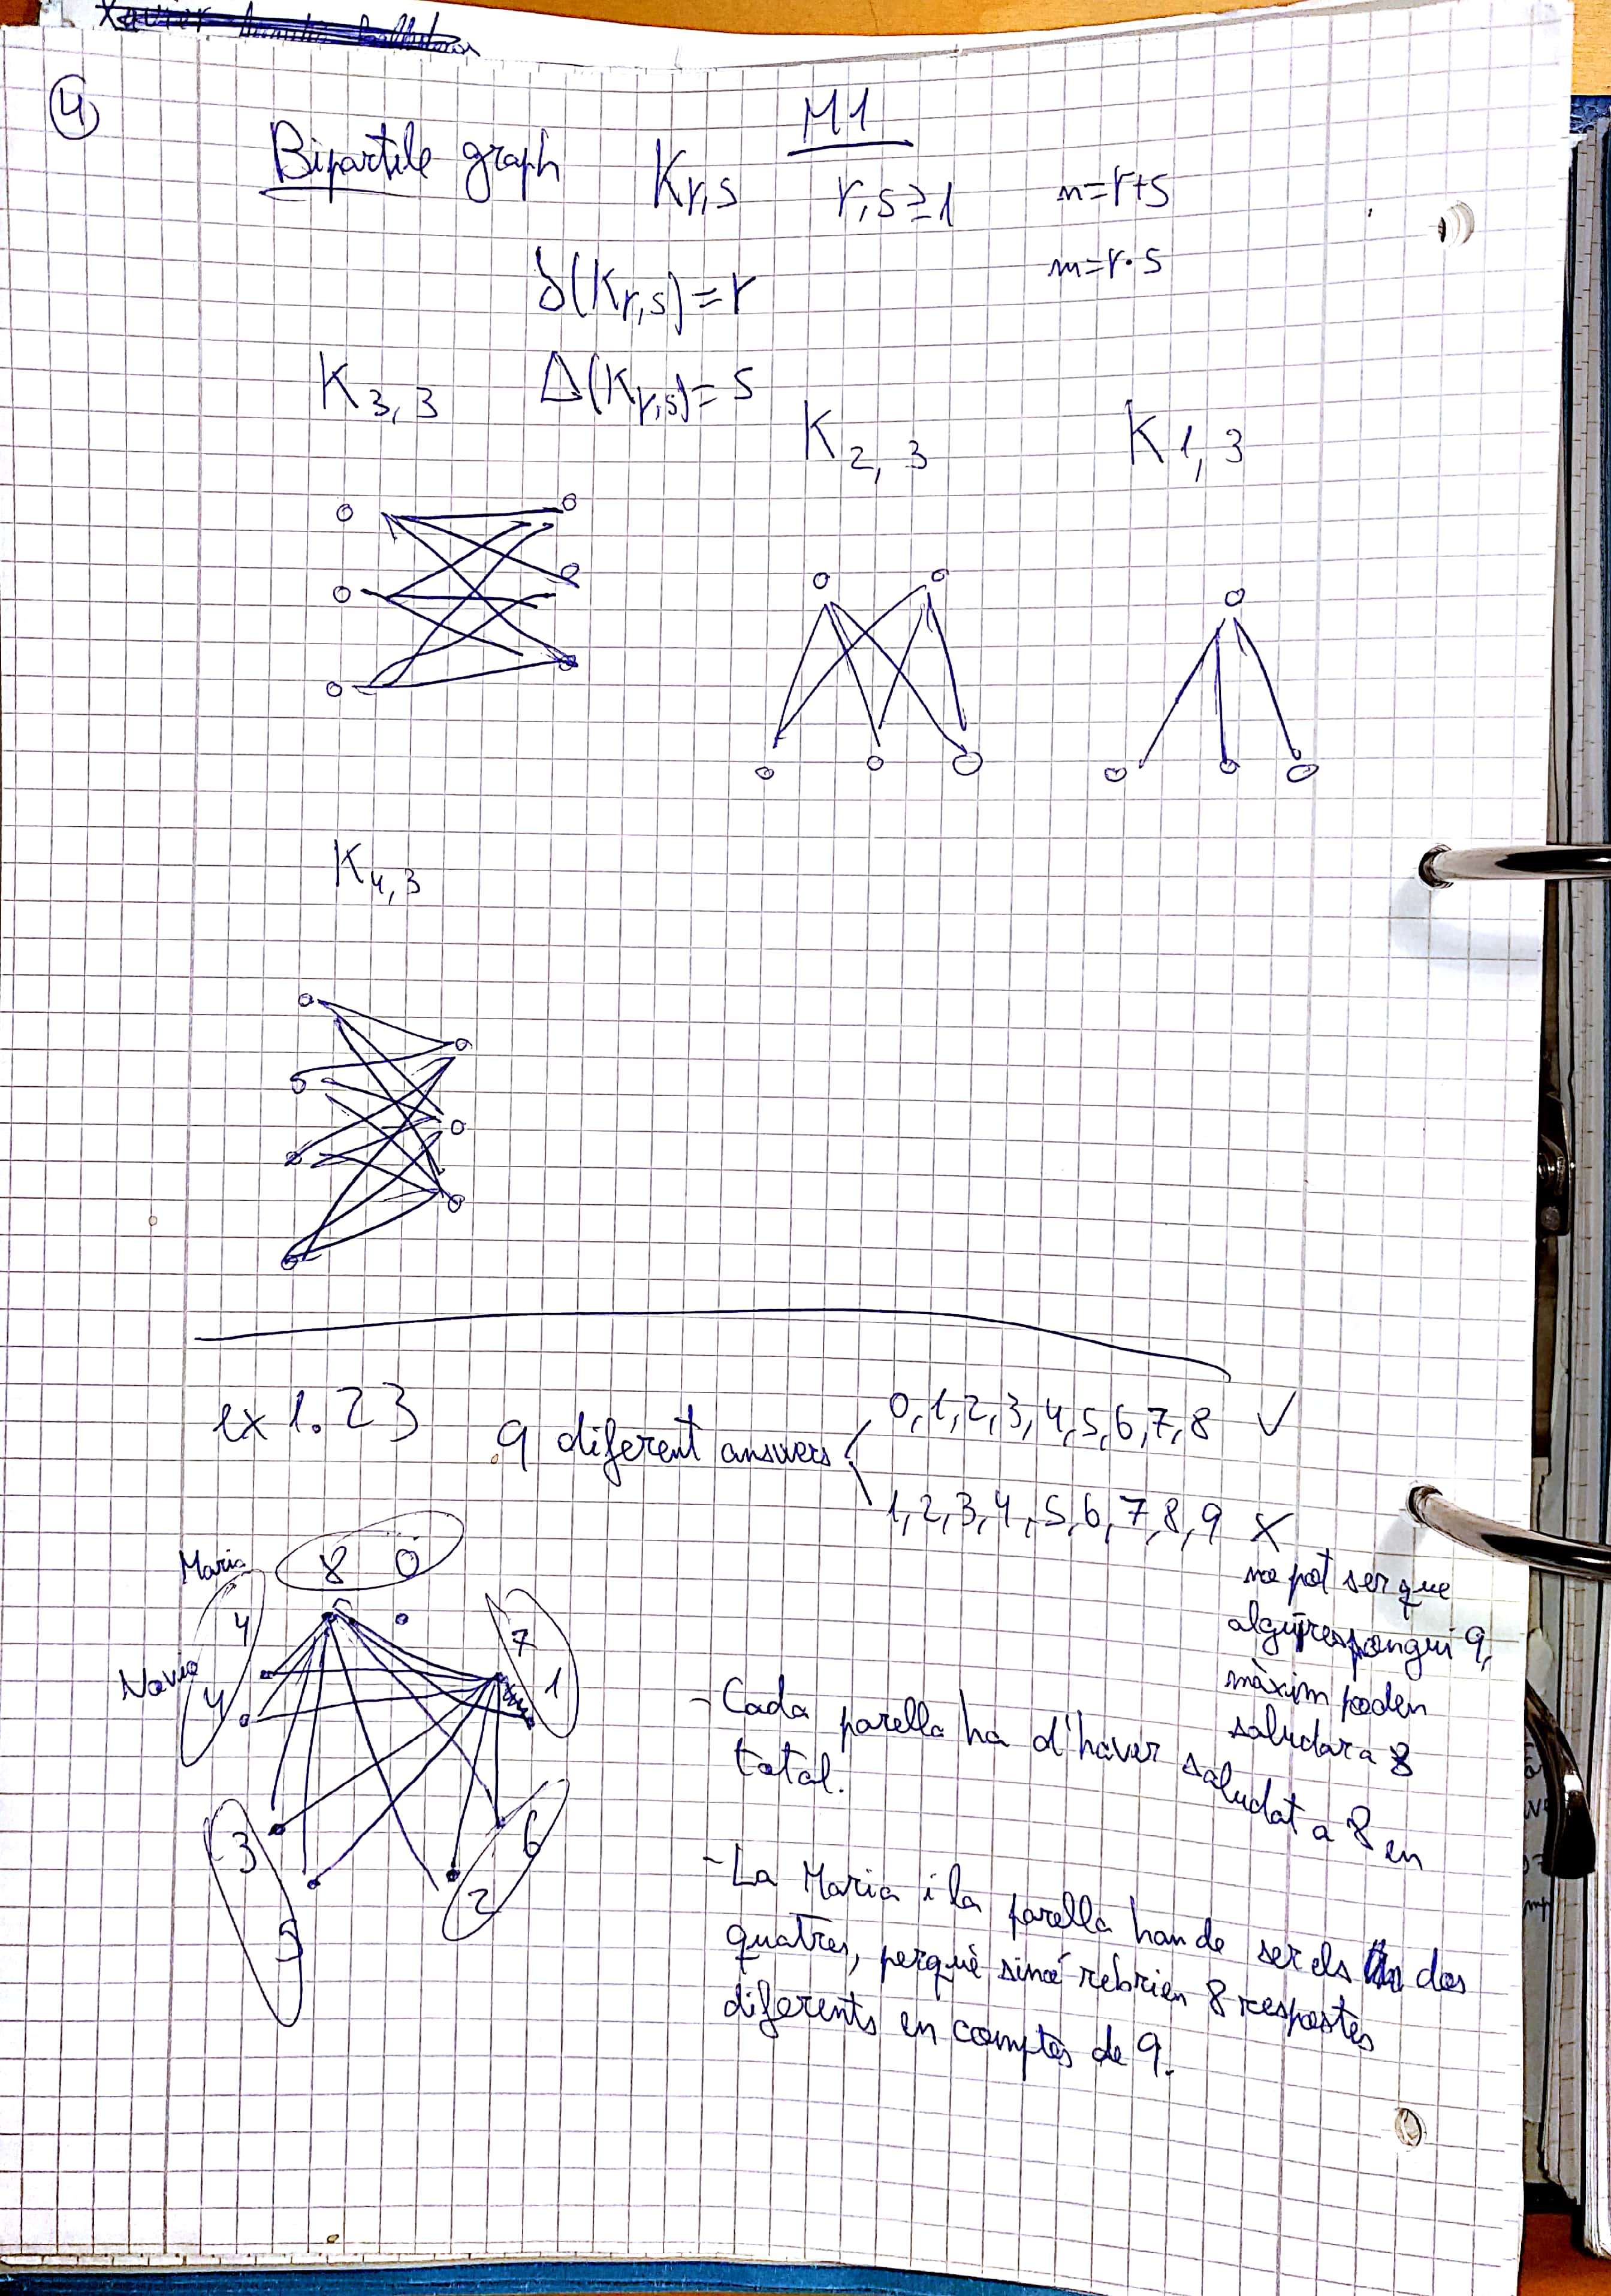 4
M1
Bipartile graph K r,s r,s≥1 n=r+s
m=r·s
δ(K r,s)=r
Δ(K r,s)=s
K 3,3
K 2,3
K 1,3
K 4,3
ex 1.23
9 diferent answers
0,1,2,3,4,5,6,7,8 ✓
1,2,3,4,5,6,7,8,9 X
no pot ser que
algú respongui 9,
màxim poden
saludar a 8
Maria
8 0
4
7
Novio
4
1
3
6
2
5
- Cada parella ha d'haver saludat a 8 en
total.
- La Maria i la parella han de ser els dos
quatres, perquè sinó rebrien 8 respostes
diferents en comptes de 9.